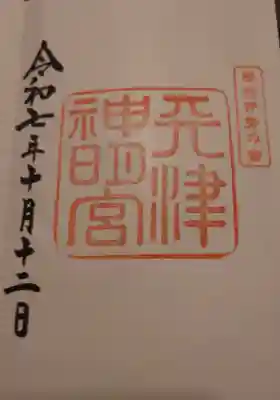 天津
神明宮
令和七年十月十二日